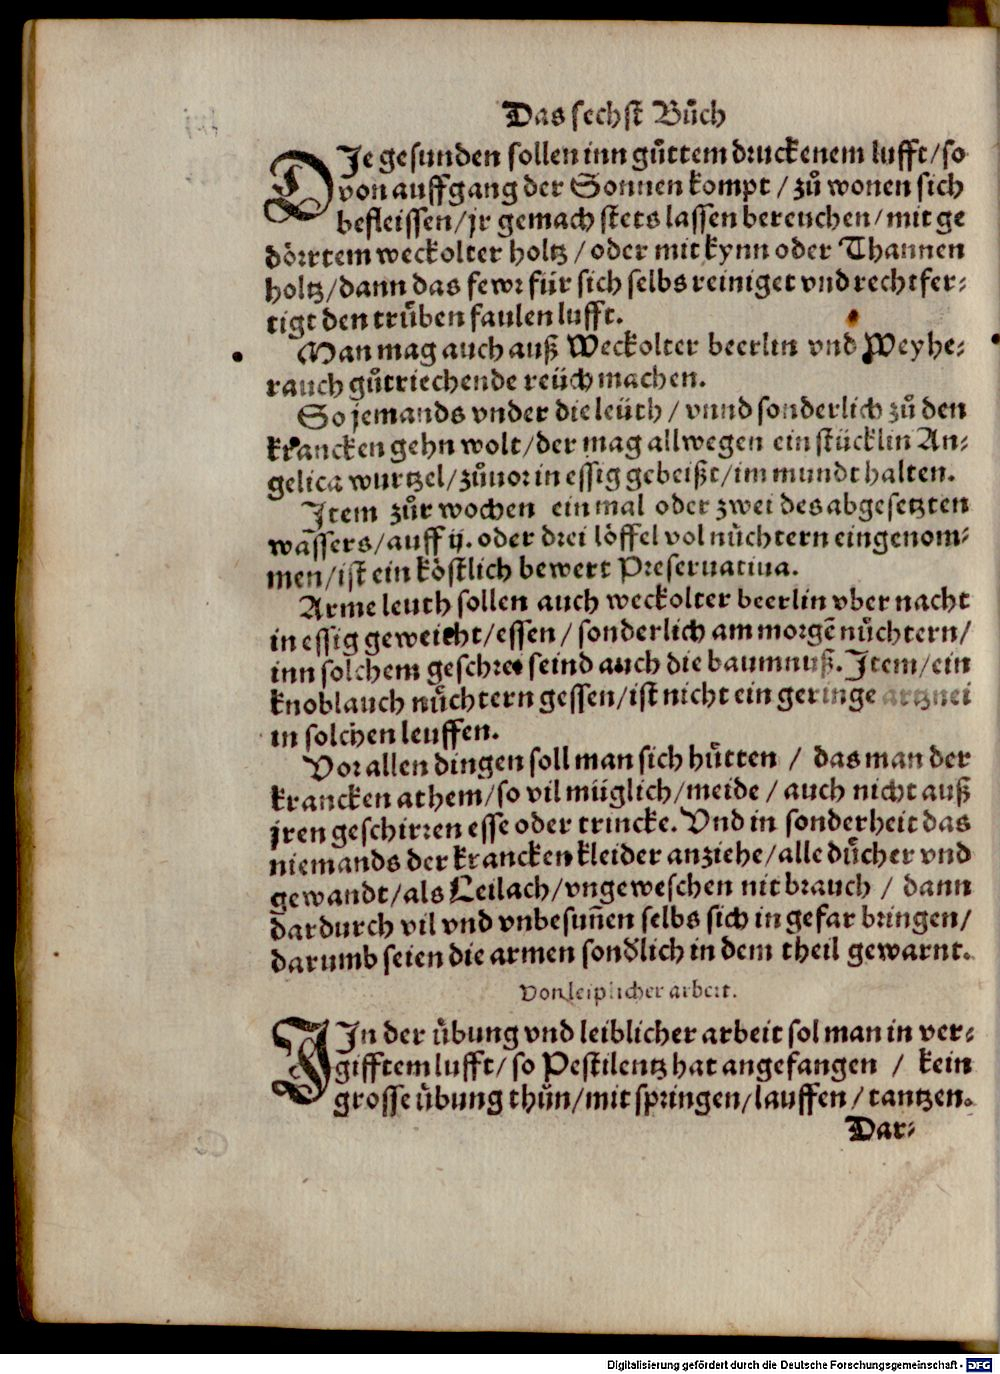 Das sechst Bůch
DJe gesunden sollen inn gůttem druckenem lufft/so
von auffgang der Sonnen kompt/zů wonen sich
befleissen/jr gemach stets lassen bereuchen/mit ge
dörrtem weckolter holtz/oder mit kynn oder Thannen
holtz/dann das fewr für sich selbs reiniget vnd rechtfer⸗
tigt den trůben faulen lufft.
Man mag auch auß Weckolter beerlin vnd Weyhe⸗
rauch gůtriechende reüch machen.
So jemands vnder die leüth/vnnd sonderlich zů den
krancken gehn wolt/der mag allwegen ein stücklin An⸗
gelica wurtzel/zůuor in essig gebeißt/im mundt halten.
Jtem zůr wochen ein mal oder zwei des abgesetzten
wassers/auff ij. oder drei löffel vol nůchtern eingenom⸗
men/ist ein köstlich bewert Preseruatiua.
Arme leuth sollen auch weckolter beerlin vber nacht
in essig geweicht/essen/sonderlich am morgẽ nůchtern/
inn solchem geschrei seind auch die baumnuß. Jtem/ein
knoblauch nůchtern gessen/ist nicht ein geringe artznei
in solchen leuffen.
Vor allen dingen soll man sich hůtten/das man der
krancken athem/so vil müglich/meide/auch nicht auß
jren geschirren esse oder trincke. Vnd in sonderheit das
niemands der krancken kleider anziehe/alle důcher vnd
gewandt/als Leilach/vngeweschen nit brauch/dann
dardurch vil vnd vnbesuñen selbs sich in gefar bringen/
darumb seien die armen sondlich in dem theil gewarnt.
Von leiplicher arbeit.
JJn der übung vnd leiblicher arbeit sol man in ver⸗
gifftem lufft/so Pestilentz hat angefangen/kein
grosse übung thůn/mit springen/lauffen/tantzen.
Dar⸗
Digitalisierung gefördert durch die Deutsche Forschungsgemeinschaft - DFG